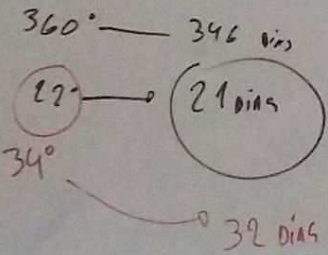 360° 346 dias
22° 21 dias
34°
32 Dias